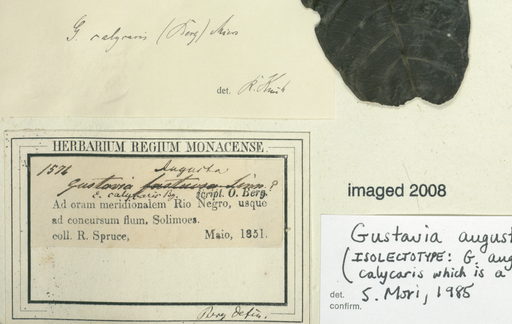 G. calycaris (Berg) Miers
det. R. Knuth
HERBARIUM REGIUM MONACENSE.
1576 Augusta
Gustavia fastuosa Linn.?
c. calycaris Bg. script. O. Berg.
Ad oram meridionalem Rio Negro, usque
ad concursum flum. Solimoes.
coll. R. Spruce, Maio, 1851.
Berg defin.
imaged 2008
Gustavia august
(ISOLECTOTYPE: G. aug
calycaris which is a
det. S. Mori, 1985
confirm.